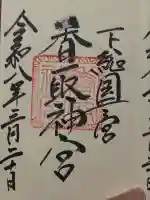 下総国一宮
香取神宮
令和八年三月二十日